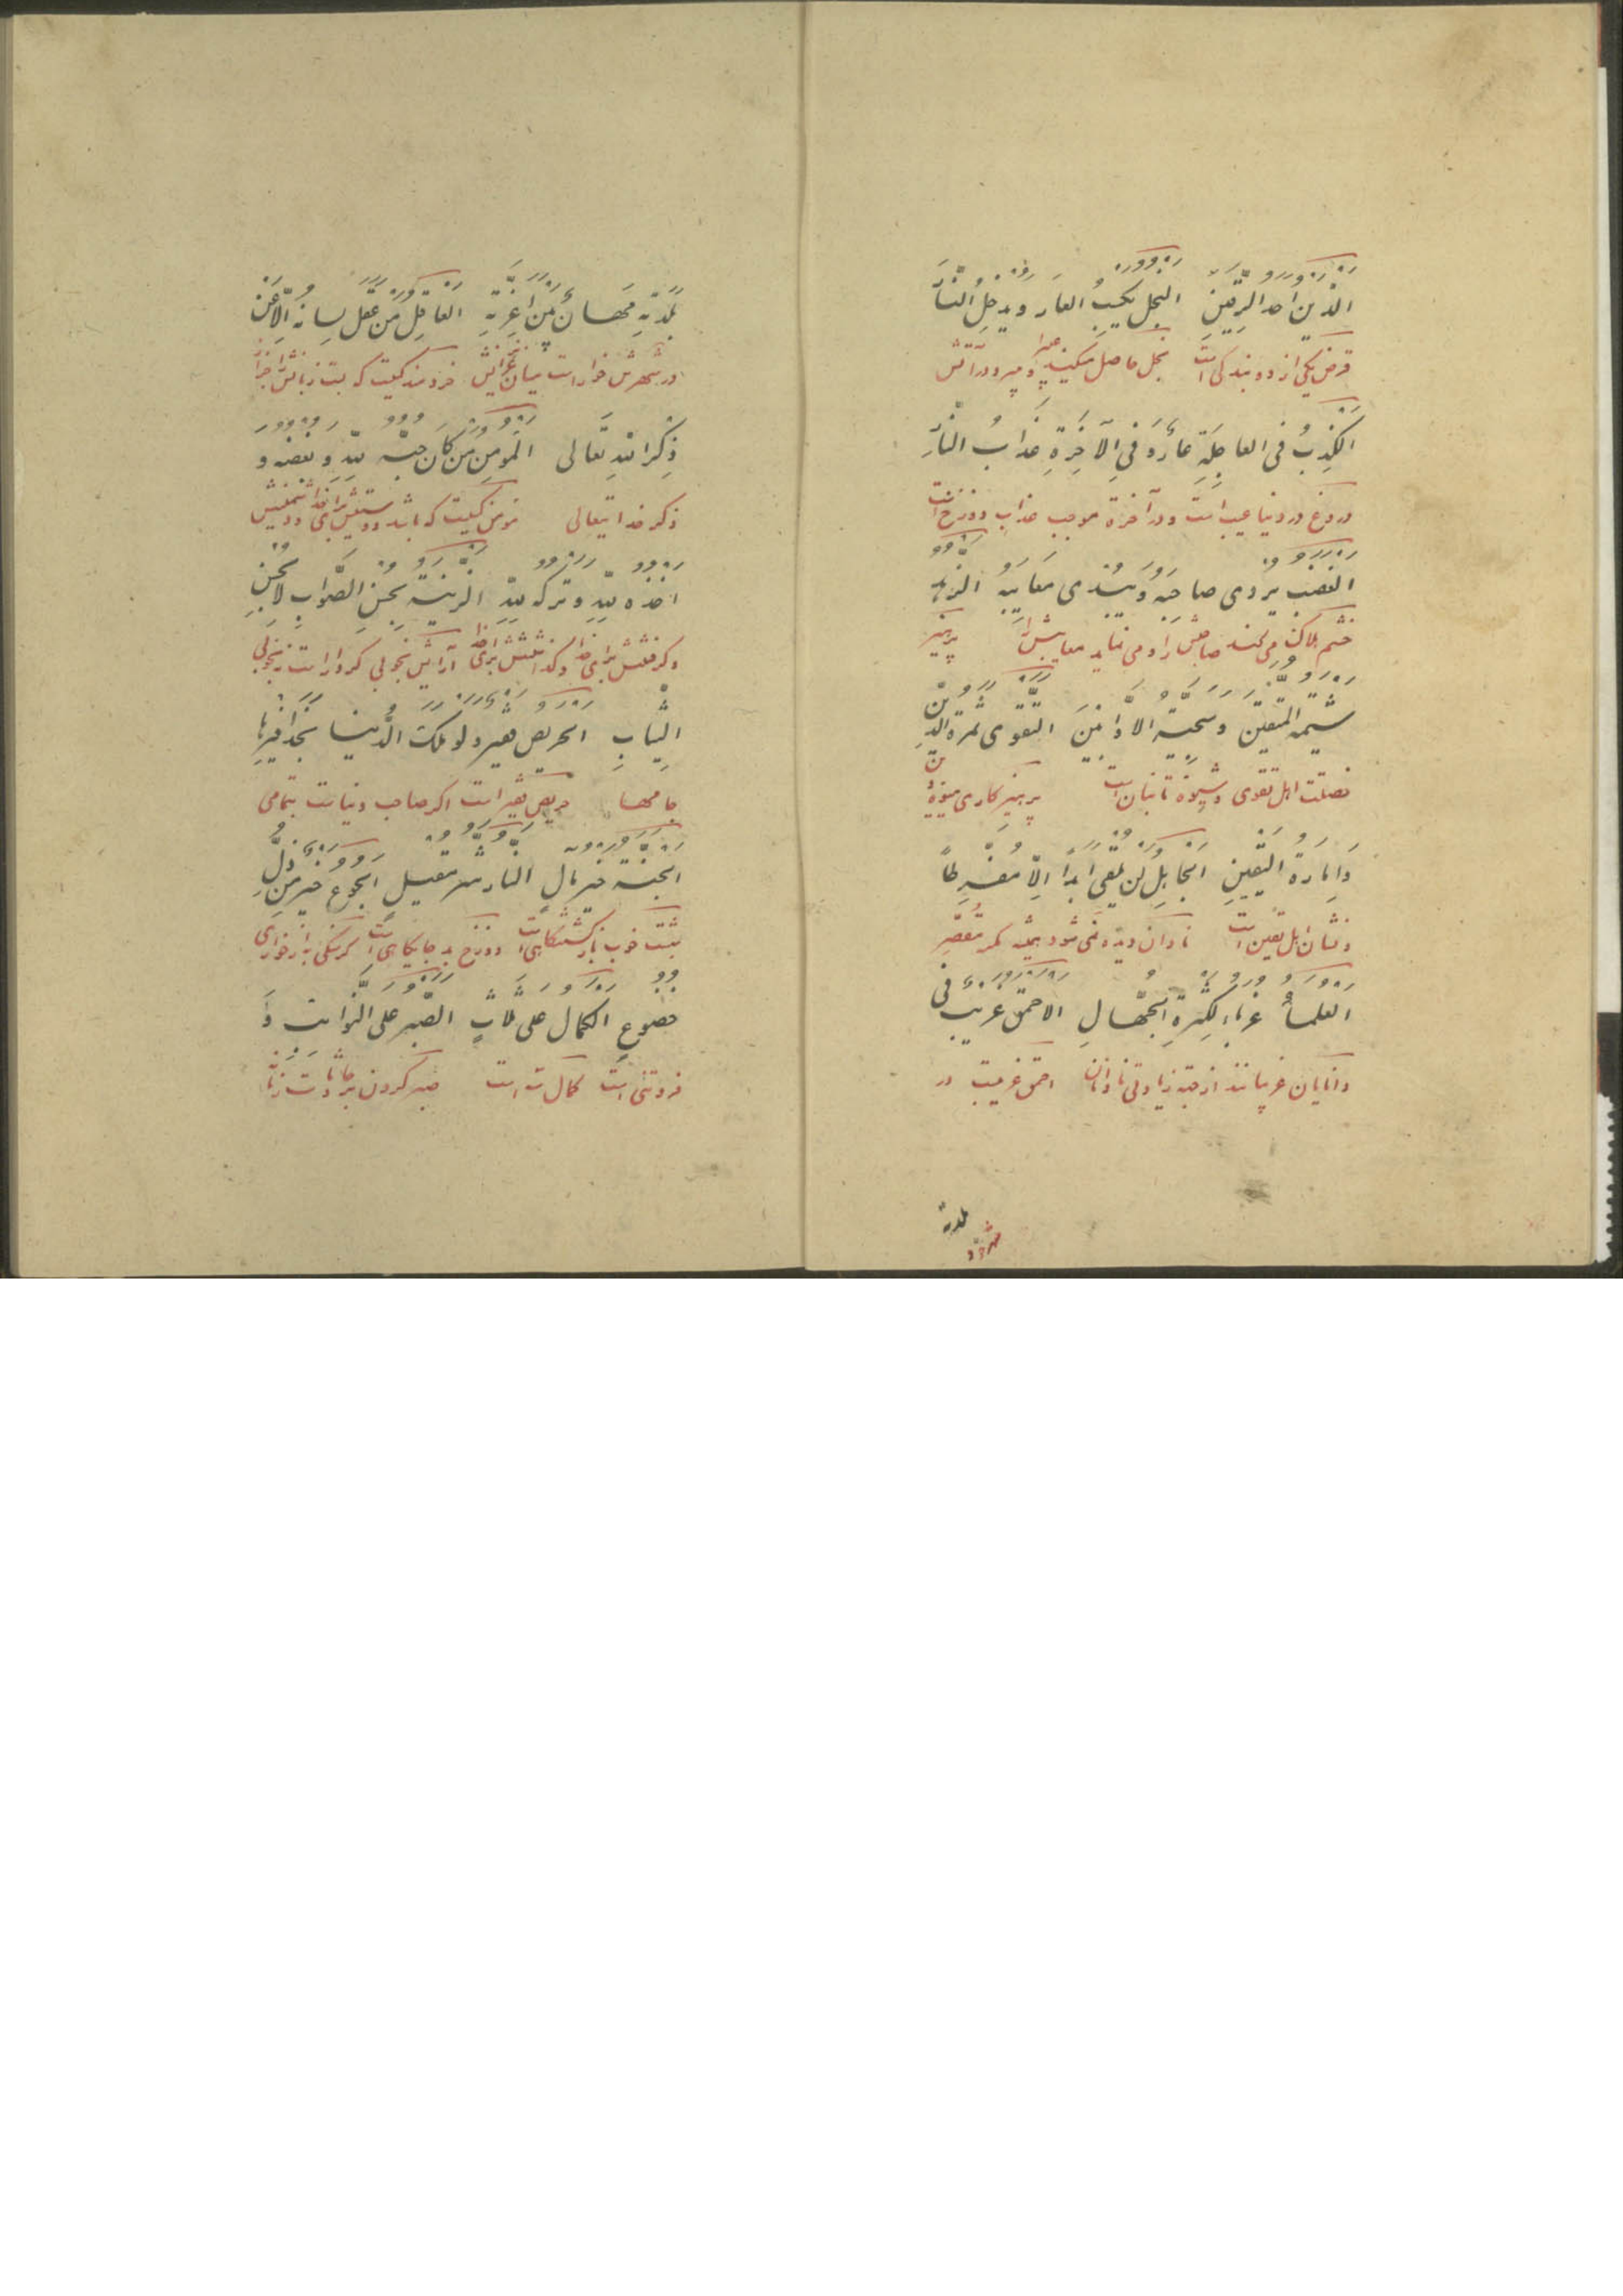 الدَّین احد الرِّقَّینِ البخل یکسِبُ العارَ ویدخِلُ النّارَ
قرض یکی از دو بندگی است بخل حاصل میکند عیب را و میبرد در آتش
الکذِبُ فی العاجِلَةِ عارٌ وَ فِی الآخِرَةِ عَذابُ النّارِ
دروغ در دنیا عیب است و در آخرة موجب عذاب دوزخ است
الغضب یُردی صاحِبَهُ وَ یُبْدی مَعایِبَهُ النزاهة
خشم هلاک می کند صاحبش را و می نماید معایبش را پرهیز
شیمة المتّقین وسجیّة الاوّابینَ التقوی ثمرة الدّینِ
خصلت اهل تقوی و شیوۀ تائبان است پرهیزکاری میوۀ دین
وَ اِمارةُ الیَقینِ الجاهِلُ لَن یُلقی ابداً اِلّا مُفَرِّطاً
و نشان اهل یقین است نادان دیده نمی شود همیشه مگر مقصّر
العلماءُ غرباءُ لِکَثرَةِ الجُهّالِ الاحمق غریبٌ فی
دانایان غریبانند از جهة زیادتی نادانان احمق غریبست در
بلدة
شهرش
بَلدَتِهِ مُهانٌ بَینَ اَعِزَّتِهِ العاقِلُ مَن عَقَلَ لِسانَهُ اِلّا عَن
در شهرش خوار است میان عزیزانش خردمند کسیست که بست زبانش را جز از
ذِکرِ اللهِ تَعالی المؤمِنُ مَن کانَ حبّه لِلّهِ وَ بغضه و
ذکر خدایتعالی مؤمن کسیست که باشد دوستیش برای خدا و دشمنیش
اخذه لِلّهِ و ترکه لِلّهِ الزینة بحسنِ الصَّوابِ لا بحسنِ
و گرفتنش برای خدا و گذاشتنش برای خدا آرایش بخوبی کردار است نه بخوبی
الثِّیابِ الحریص فقیر و لو ملک الدُّنیا بِحَذافیرِها
جامها حریص فقیر است اگر صاحب دنیاست بتمامی
الجنّة خیر مآلٍ النار شر مقیلٍ الجوع خیر مِن ذُلِّ
بهشت خوب بازگشتگاهی است دوزخ بد جایگاهی است گرسنگی به از خواری
خضوعِ الکمال علی ثلاثٍ الصّبر علی النوائب وَ
فروتنی است کمال سه است صبر کردن بر حادثات زمانه